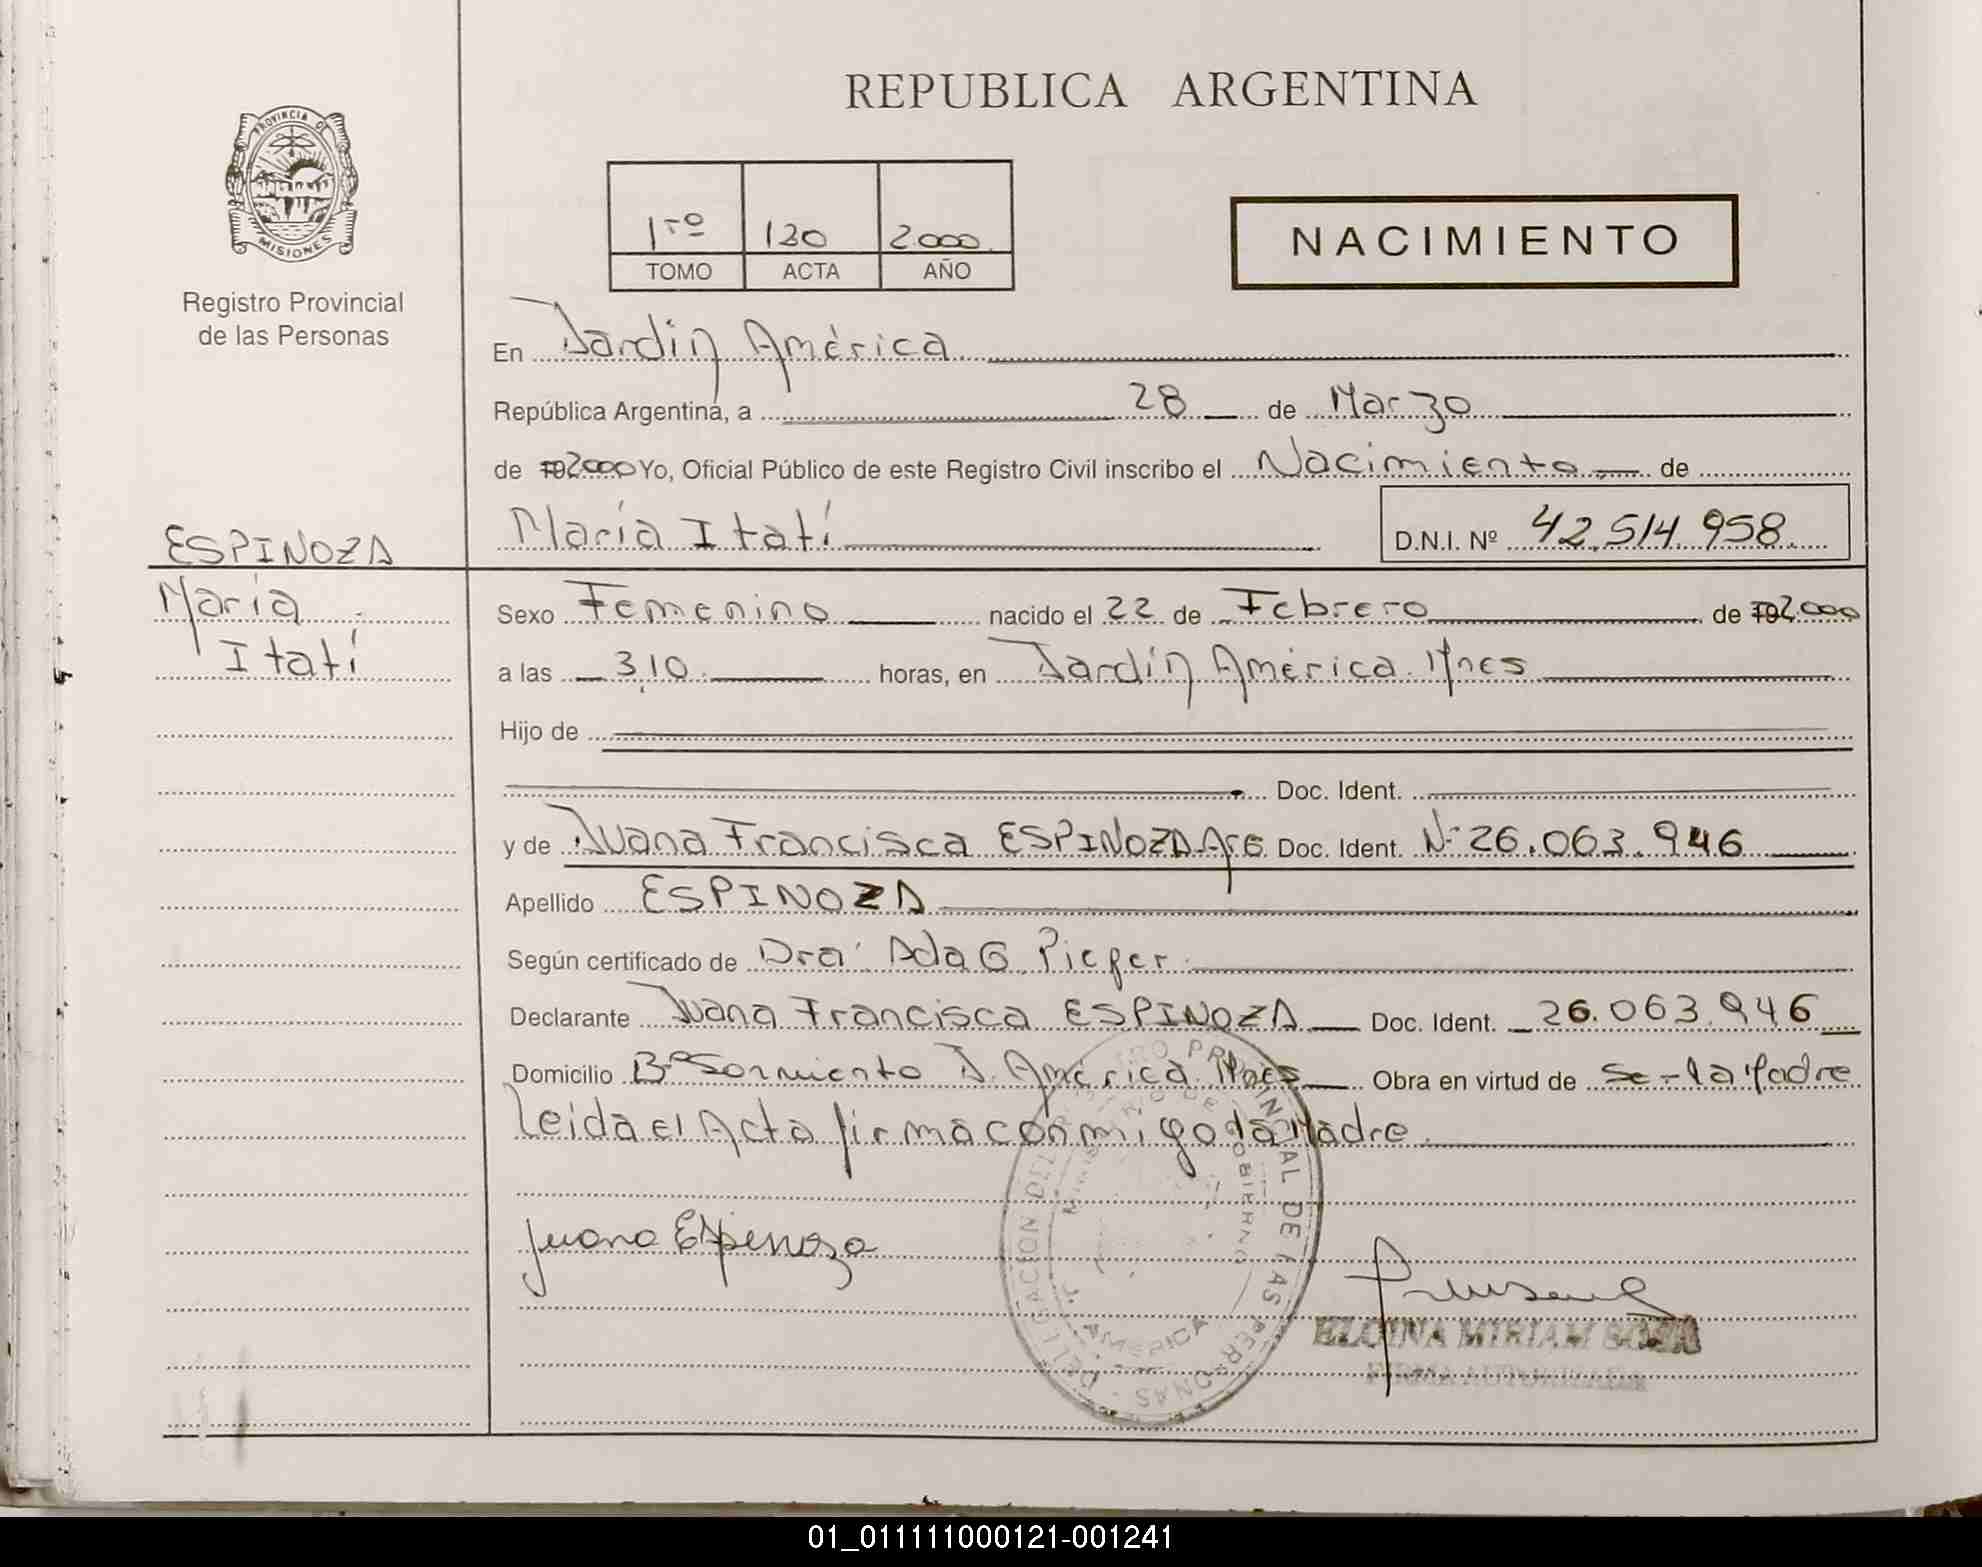 REPUBLICA ARGENTINA
PROVINCIA DE
MISIONES
Registro Provincial
de las Personas
1ro 130 2.000
TOMO ACTA AÑO
NACIMIENTO
En Jardín América
República Argentina, a 28 de Marzo
de 19 2000 Yo, Oficial Público de este Registro Civil inscribo el Nacimiento de
María Itatí D.N.I. Nº 42.514.958.
ESPINOZA
María
Itatí
Sexo Femenino nacido el 22 de Febrero de 19 2.000
a las 3,10 horas, en Jardín América. Mnes
Hijo de
Doc. Ident.
y de Juana Francisca ESPINOZA Arg. Doc. Ident. Nº 26.063.946
Apellido ESPINOZA
Según certificado de Dra. Ada G. Pieper.
Declarante Juana Francisca ESPINOZA Doc. Ident. 26.063.946
Domicilio Bº Sarmiento J. América. Mnes Obra en virtud de Se- la Madre
Leida el Acta firma conmigo la Madre.
Juana Espinoza
DELEGACION DEL REGISTRO PROVINCIAL DE LAS PERSONAS
MINISTERIO DE GOBIERNO
J. AMERICA
MIRIAM
FIRMA AUTORIZADA
01_011111000121-001241